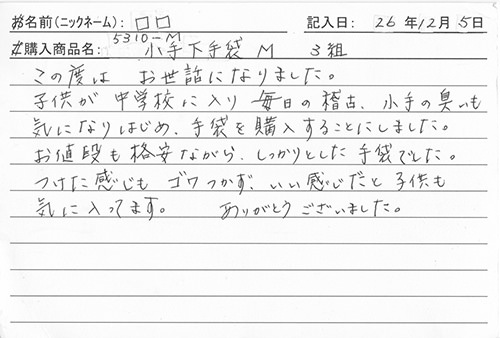 お名前(ニックネーム): 口口 記入日: 26年12月5日
5310-M
ご購入商品名: 小手下手袋 M 3組
この度は お世話になりました。
子供が 中学校に入り 毎日の稽古、小手の臭いも
気になりはじめ、手袋を購入することにしました。
お値段も格安ながら、しっかりとした手袋でした。
つけた感じも ゴワつかず、いい感じだと子供も
気に入ってます。 ありがとうございました。